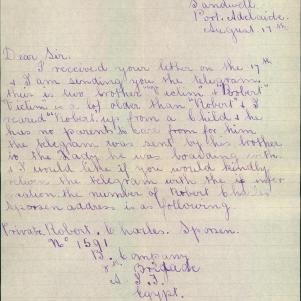 Sandwell
Port. Adelaide.
August 17th
Dear Sir.
I received your letter on the 17th
& I am sending you the telegram
this is two brother "Victim" & "Robert"
Victim" is a lot older than "Robert" & I
reard "Robert, up from a Child & he
has no parents to care from for him
the telegram was sent by this brother
to the Lady he was boarding with
& I would like if you would kindly
return the telegram with the
the number of Robert
address is as following.
Private Robert. Charles. Sporsen.
No 1591
B. Company
Brigade
A. I. F.
Egypt.